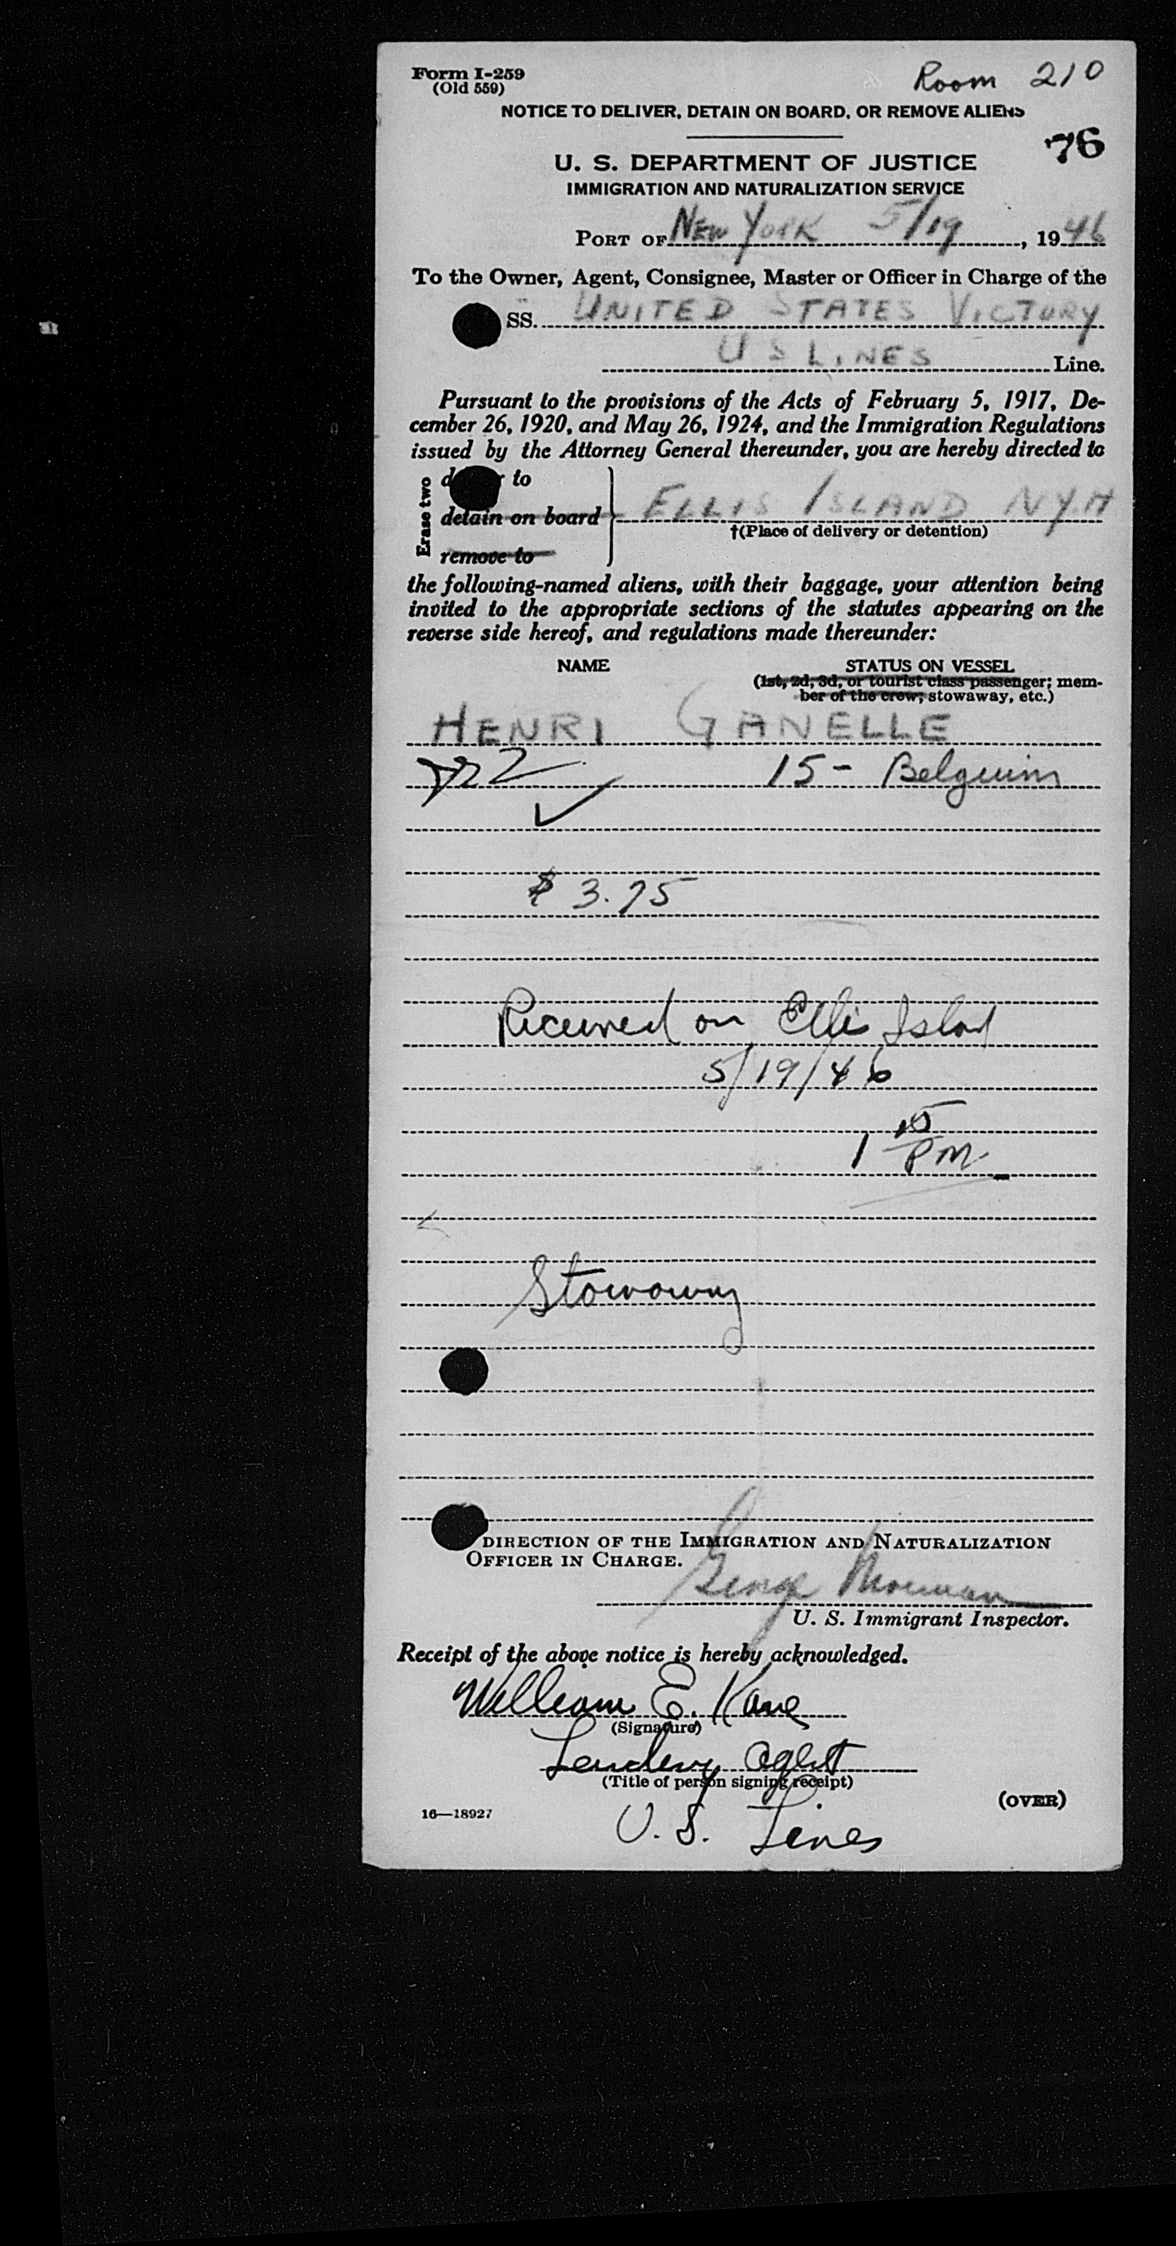 Form I-259
(Old 559)
Room 210
NOTICE TO DELIVER, DETAIN ON BOARD, OR REMOVE ALIENS
76
U. S. DEPARTMENT OF JUSTICE
IMMIGRATION AND NATURALIZATION SERVICE
PORT OF NEW YORK 5/19, 1946
To the Owner, Agent, Consignee, Master or Officer in Charge of the
SS. UNITED STATES VICTORY
U S LINES Line.
Pursuant to the provisions of the Acts of February 5, 1917, De-
cember 26, 1920, and May 26, 1924, and the Immigration Regulations
issued by the Attorney General thereunder, you are hereby directed to
Erase two
to
detain on board ELLIS ISLAND NYH
†(Place of delivery or detention)
remove to
the following-named aliens, with their baggage, your attention being
invited to the appropriate sections of the statutes appearing on the
reverse side hereof, and regulations made thereunder:
NAME STATUS ON VESSEL
(1st, 2d, 3d, or tourist class passenger; mem-
ber of the crew; stowaway, etc.)
HENRI GANELLE
15 - Belguim
$ 3.75
Received on Ellis Island
5/19/46
1 15 PM
Stowaway
DIRECTION OF THE IMMIGRATION AND NATURALIZATION
OFFICER IN CHARGE.
George
U. S. Immigrant Inspector.
Receipt of the above notice is hereby acknowledged.
William E. Kane
(Signature)
agent
(Title of person signing receipt)
16—18927
(OVER)
U. S. Lines